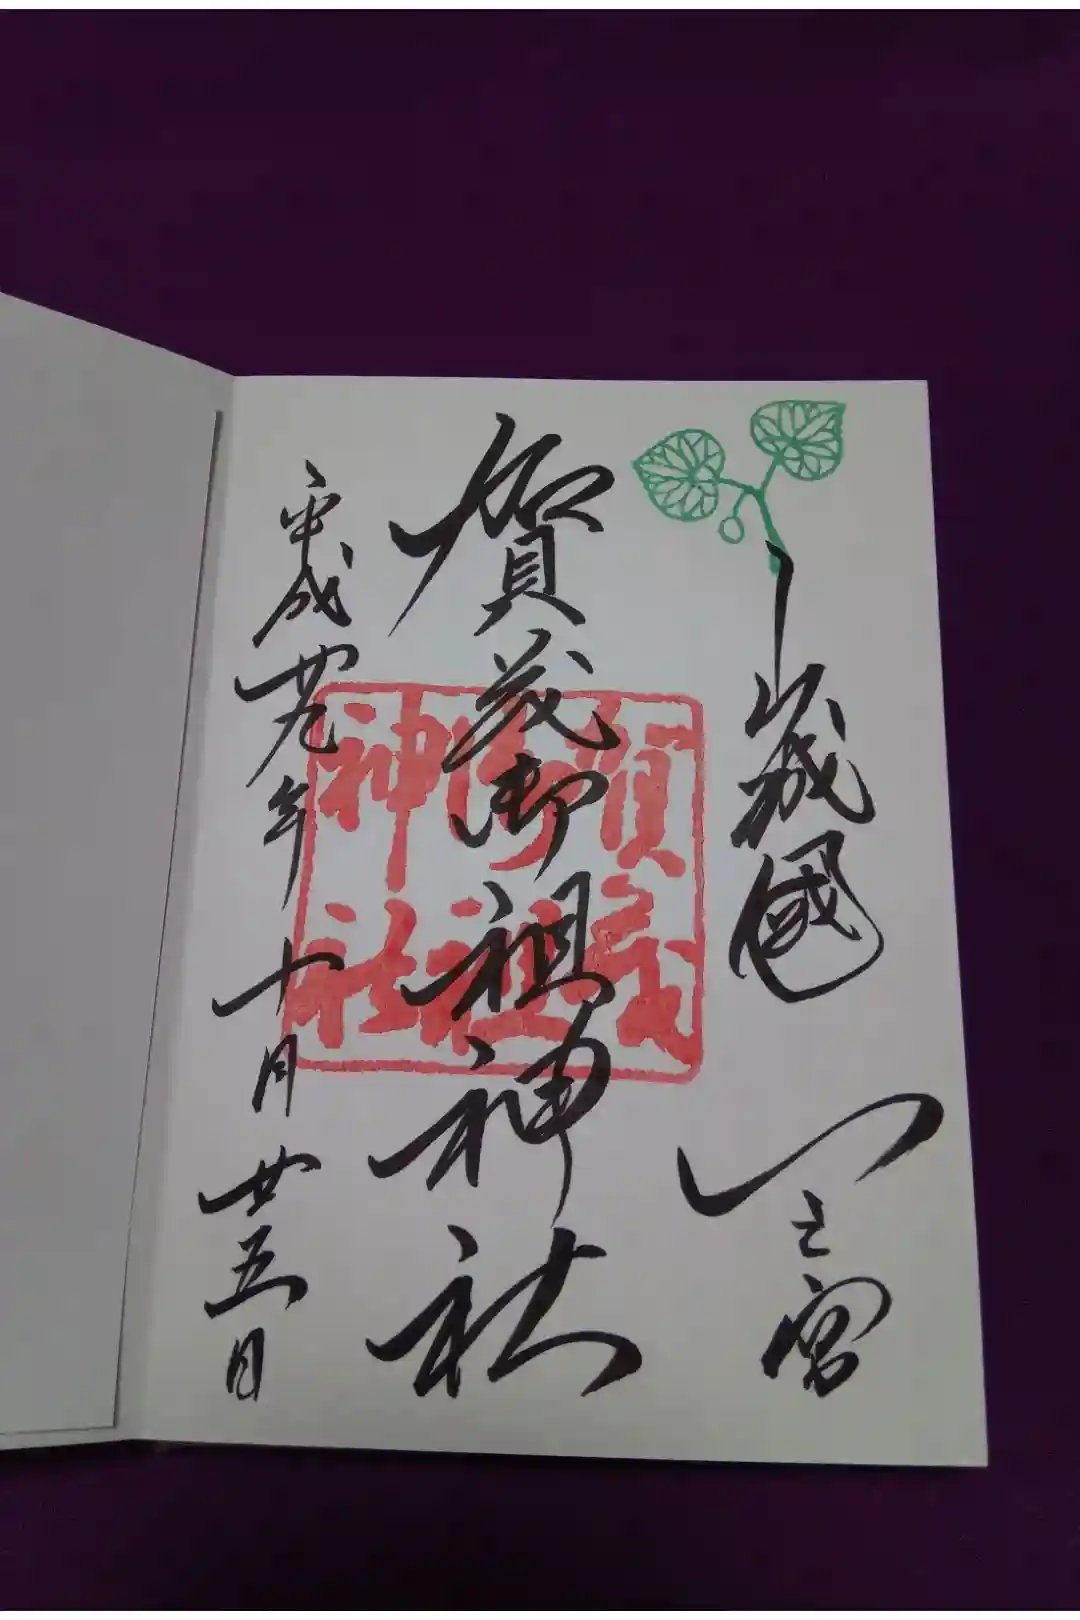 山城國 一之宮
賀茂御祖神社
平成廿九年十月廿五日
賀茂
御祖
神社